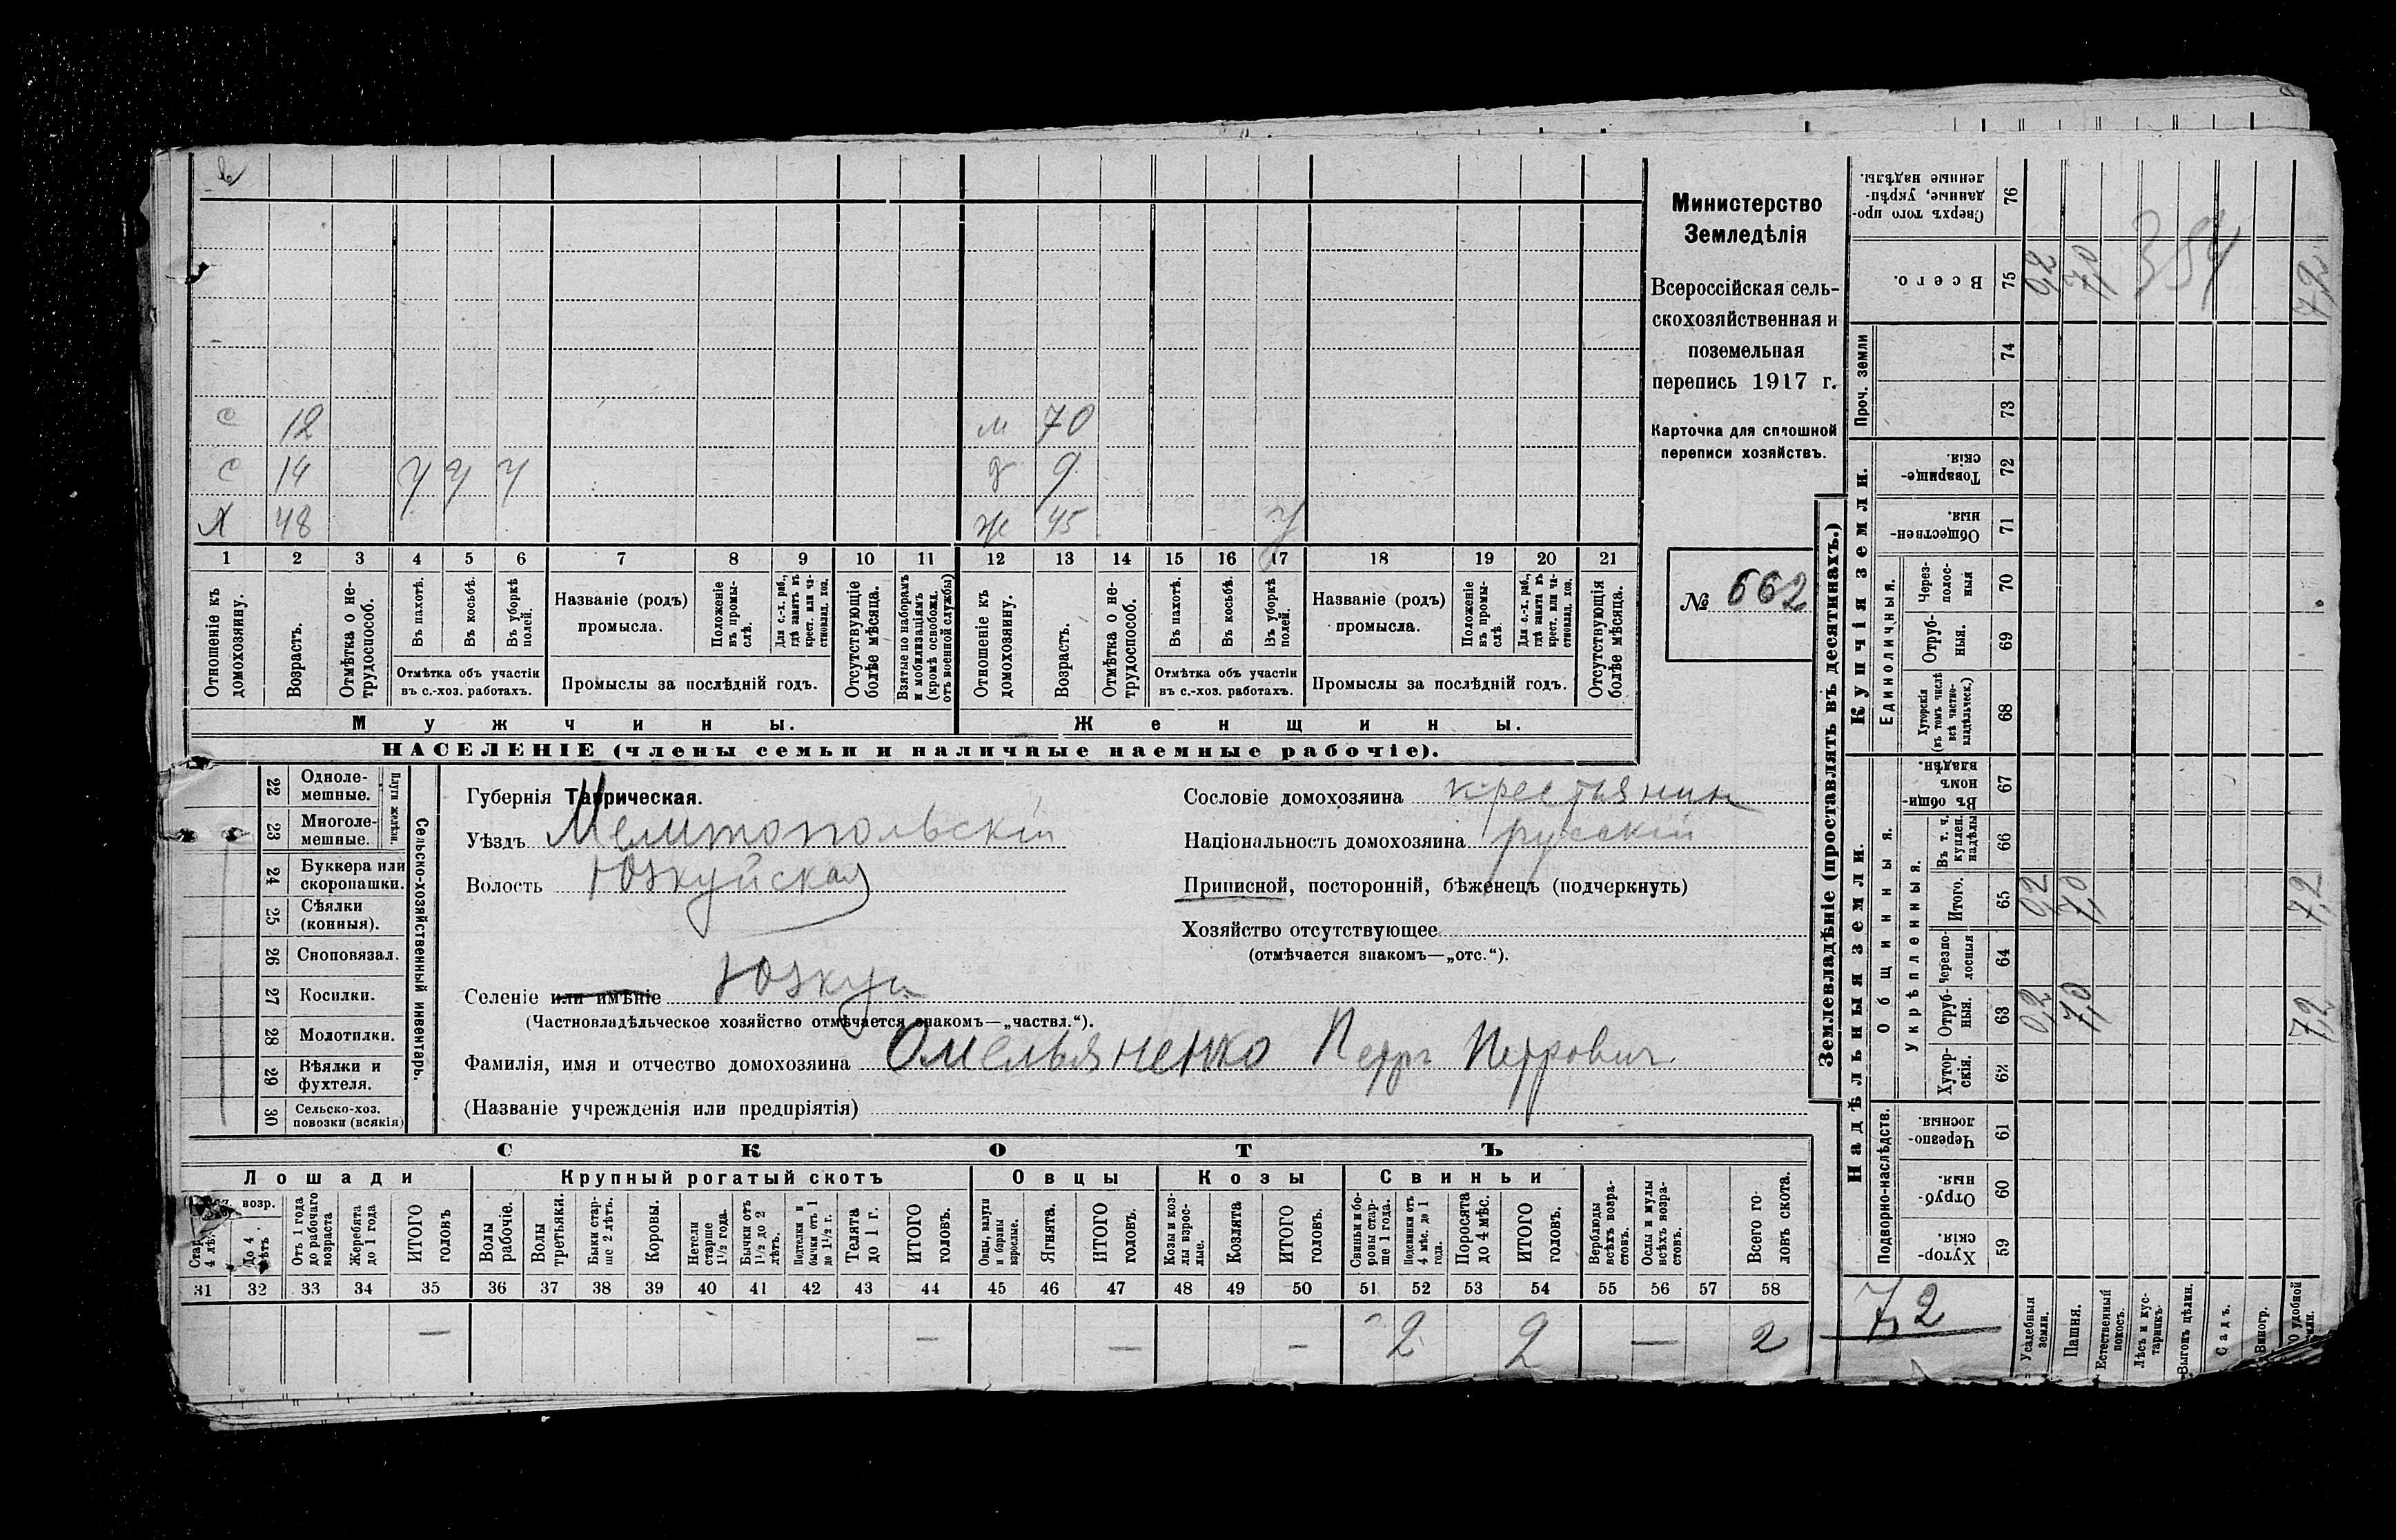 Министерство
Земледѣлія
Всероссійская сель-
скохозяйственная и
поземельная
перепись 1917 г.
Карточка для сплошной
переписи хозяйствъ.
№ 662
с 12 м 70
с 14 У У У д 9
Х 48 ж 45 У
1 2 3 4 5 6 7 8 9 10 11 12 13 14 15 16 17 18 19 20 21
Отношеніе къ домохозяину.
Возрастъ.
Отмѣтка о не-трудоспособ.
Въ пахотѣ.
Въ косьбѣ.
Въ уборкѣ полей.
Отмѣтка объ участіи
въ с.-хоз. работахъ.
Названіе (родъ)
промысла.
Положеніе въ промы-слѣ.
Для с.-х. раб., гдѣ занятъ въ крест. или ча-ствовлад. хоз.
Промыслы за послѣдній годъ.
Отсутствующіе болѣе мѣсяца.
Взятые по наборамъ и мобилизаціямъ (кромѣ освобожд. отъ военной службы)
Отношеніе къ домохозяину.
Возрастъ.
Отмѣтка о не-трудоспособ.
Въ пахотѣ.
Въ косьбѣ.
Въ уборкѣ полей.
Отмѣтка объ участіи
въ с.-хоз. работахъ.
Названіе (родъ)
промысла.
Положеніе въ промы-слѣ.
Для с.-х. раб., гдѣ занята въ крест. или ча-ствовлад. хоз.
Промыслы за послѣдній годъ.
Отсутствующія болѣе мѣсяца.
Мужчины. Женщины.
НАСЕЛЕНІЕ (члены семьи и наличные наемные рабочіе).
22 Одноле-мешные.
23 Многоле-мешные.
Плуги желѣзн.
24 Буккера или скоропашки.
25 Сѣялки (конныя).
26 Сноповязал.
27 Косилки.
28 Молотилки.
29 Вѣялки и фухтеля.
30 Сельско-хоз. повозки (всякія)
Сельско-хозяйственный инвентарь.
Губернія Таврическая.
Уѣздъ Мелитопольскій
Волость Юзкуйская
Селеніе или имѣніе Юзкуи
(Частновладѣльческое хозяйство отмѣчается знакомъ—„частвл.“).
Фамилія, имя и отчество домохозяина Омельяненко Петръ Петрович.
(Названіе учрежденія или предпріятія)
Сословіе домохозяина крестьянин
Національность домохозяина русскій
Приписной, посторонній, бѣженецъ (подчеркнуть)
Хозяйство отсутствующее
(отмѣчается знакомъ—„отс.“).
СКОТЪ
Лошади Крупный рогатый скотъ Овцы Козы Свиньи
возр.
До 4 лѣтъ
Отъ 1 года до рабочаго возраста
Жеребята до 1 года
ИТОГО головъ
Волы рабочіе.
Волы третьяки.
Быки стар-ше 2 лѣтъ.
Коровы.
Нетели старше 1 1/2 года.
Бычки отъ 1 1/2 до 2 лѣтъ.
Подтелки и бычки отъ 1 до 1 1/2 г.
Телята до 1 г.
ИТОГО головъ.
Овцы, валухи и бараны взрослые.
Ягнята.
ИТОГО головъ.
Козы и коз-лы взрос-лые.
Козлята
ИТОГО головъ.
Свиньи и бо-ровы стар-ше 1 года.
Подсвинки отъ 4 мѣс. до 1 года.
Поросята до 4 мѣс.
ИТОГО головъ.
Верблюды всѣхъ возра-стовъ.
Ослы и мулы всѣхъ возра-стовъ.
Всего го-ловъ скота.
31 32 33 34 35 36 37 38 39 40 41 42 43 44 45 46 47 48 49 50 51 52 53 54 55 56 57 58
— — — — 2 2 — 2
Землевладѣніе (проставлять въ десятинахъ.)
Купчія земли.
Надѣльныя земли.
Сверхъ того про-данные, укрѣп-ленные надѣлы. 76
Всего. 75 0,2 7,0 7,2
354
Проч. земли
74
73
Товарище-скія. 72
Обществен-ныя. 71
Единоличныя.
Через-полос-ныя 70
Отруб-ныя. 69
Хуторскія (въ томъ числѣ всѣ частно-владѣльческ.) 68
Общинныя.
Въ общин-номъ владѣн. 67
Укрѣпленныя.
Въ т. ч. куплен. надѣлы 66
Итого. 65 0,2 7,0 7,2
Черезпо-лосныя 64
Отруб-ныя. 63 0,2 7,0 7,2
Хутор-скія. 62
Подворно-наслѣдств.
Черезпо-лосныя. 61
Отруб-ныя. 60
Хутор-скія. 59
7,2
Усадебныя земли.
Пашня.
Естественный покосъ.
Лѣсъ и кус-тарникъ.
Выгонъ цѣлин.
Садъ.
Виногр.
удобной земли.